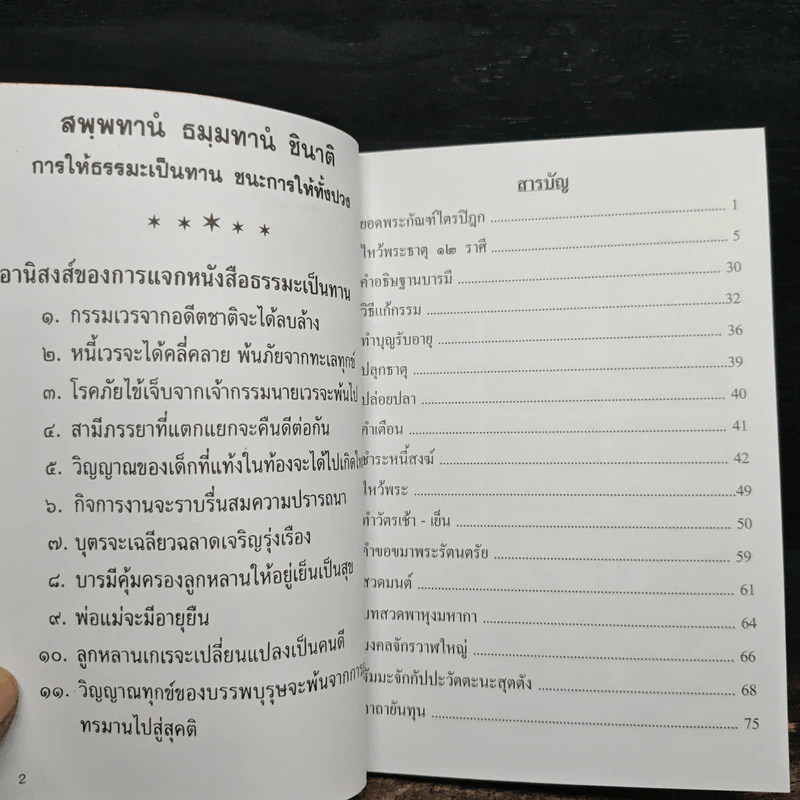 สพฺพทานํ ธมฺมทานํ ชินาติ
การให้ธรรมะเป็นทาน ชนะการให้ทั้งปวง
อานิสงส์ของการแจกหนังสือธรรมะเป็นทาน
๑. กรรมเวรจากอดีตชาติจะได้ลบล้าง
๒. หนี้เวรจะได้คลี่คลาย พ้นภัยจากทะเลทุกข์
๓. โรคภัยไข้เจ็บจากเจ้ากรรมนายเวรจะพ้นไป
๔. สามีภรรยาที่แตกแยกจะคืนดีต่อกัน
๕. วิญญาณของเด็กที่แท้งในท้องจะได้ไปเกิด
๖. กิจการงานจะราบรื่นสมความปรารถนา
๗. บุตรจะเฉลียวฉลาดเจริญรุ่งเรือง
๘. บารมีคุ้มครองลูกหลานให้อยู่เย็นเป็นสุข
๙. พ่อแม่จะมีอายุยืน
๑๐. ลูกหลานเกเรจะเปลี่ยนแปลงเป็นคนดี
๑๑. วิญญาณทุกข์ของบรรพบุรุษจะพ้นจากการ
ทรมานไปสู่สุคติ
2
สารบัญ
ยอดพระกัณฑ์ไตรปิฎก ........ 1
ไหว้พระธาตุ ๑๒ ราศี ........ 5
คำอธิษฐานบารมี ........ 30
วิธีแก้กรรม ........ 32
ทำบุญรับอายุ ........ 36
ปลุกธาตุ ........ 39
ปล่อยปลา ........ 40
คำเตือน ........ 41
ชำระหนี้สงฆ์ ........ 42
ไหว้พระ ........ 49
ทำวัตรเช้า - เย็น ........ 50
คำขอขมาพระรัตนตรัย ........ 59
สวดมนต์ ........ 61
บทสวดพาหุงมหากา ........ 64
มงคลจักรวาฬใหญ่ ........ 66
ธัมมะจักกัปปะวัตตะนะสุตตัง ........ 68
คาถายันทุน ........ 75